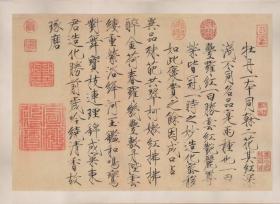 牡丹一本同榦二花其紅深
淺不同名品實兩種也一曰
疊羅紅一曰勝雲紅艷麗尊
榮皆冠一時之妙造化密移
如此褒賞之餘因成口占
異品殊葩共翠柯嫩紅拂拂
醉金荷春羅幾疊敷丹陛雲
縷重縈浴絳河玉鑑和鳴鸞
對舞寶枝連理錦成窠東
君造化勝前歲吟繞清香故
琢磨